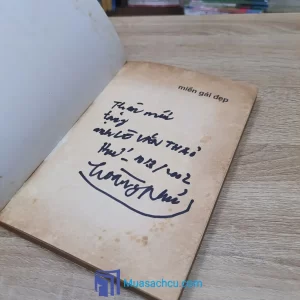 miền gái đẹp
Thân mến
tặng
anh LÊ VĂN THẢO
Huế
2002
Hoàng Phủ
Muasachcu.com